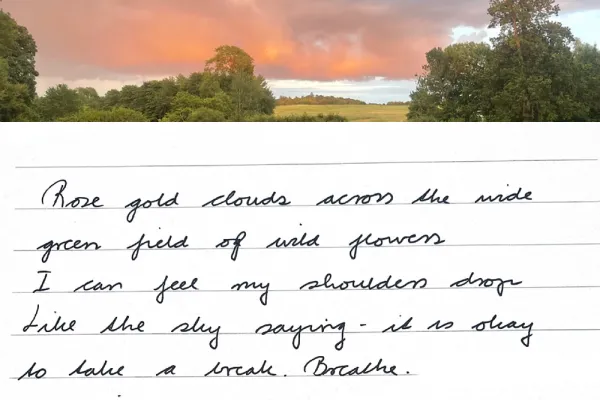 Rose gold clouds across the wide
green field of wild flowers
I can feel my shoulders drop
Like the sky saying - it is okay
to take a break. Breathe.